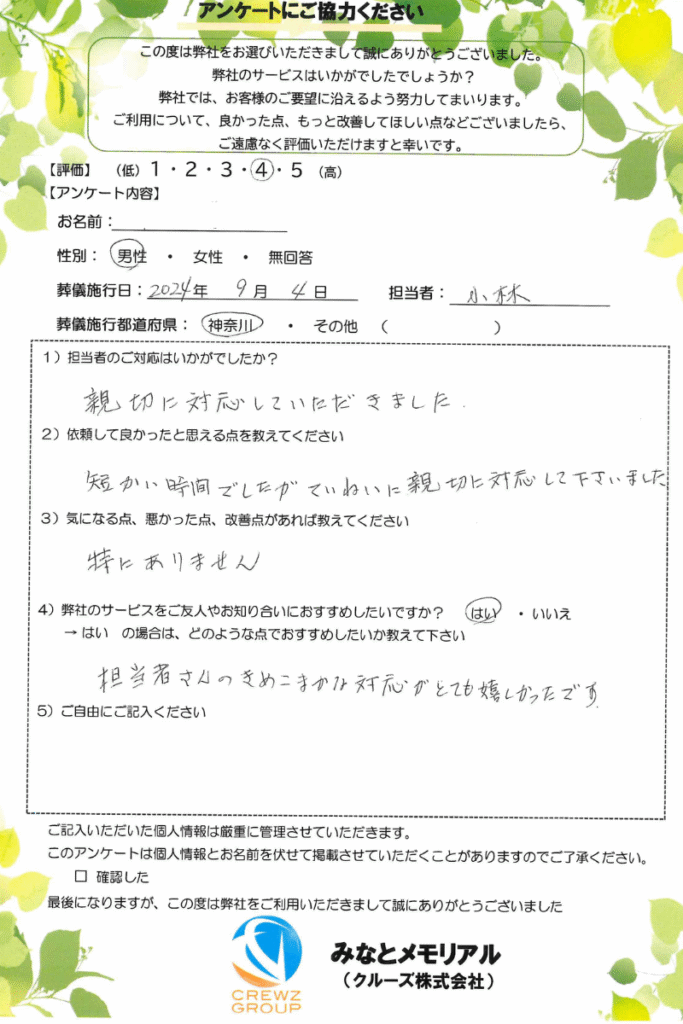 アンケートにご協力ください
この度は弊社をお選びいただきまして誠にありがとうございました。
弊社のサービスはいかがでしたでしょうか？
弊社では、お客様のご要望に沿えるよう努力してまいります。
ご利用について、良かった点、もっと改善してほしい点などございましたら、
ご遠慮なく評価いただけますと幸いです。
【評価】 （低）１・２・３・④・５（高）
【アンケート内容】
お名前：
性別： 男性 ・ 女性 ・ 無回答
葬儀施行日：2024年 9月 4日 担当者：小林
葬儀施行都道府県： 神奈川 ・ その他 （ ）
１）担当者のご対応はいかがでしたか？
親切に対応していただきました.
２）依頼して良かったと思える点を教えてください
短かい時間でしたがていねいに親切に対応して下さいました
３）気になる点、悪かった点、改善点があれば教えてください
特にありません
４）弊社のサービスをご友人やお知り合いにおすすめしたいですか？ はい ・いいえ
→ はい の場合は、どのような点でおすすめしたいか教えて下さい
担当者さんのきめこまかな対応がとても嬉しかったです.
５）ご自由にご記入ください
ご記入いただいた個人情報は厳重に管理させていただきます。
このアンケートは個人情報とお名前を伏せて掲載させていただくことがありますのでご了承ください。
□ 確認した
最後になりますが、この度は弊社をご利用いただきまして誠にありがとうございました
CREWZ
GROUP
みなとメモリアル
（クルーズ株式会社）